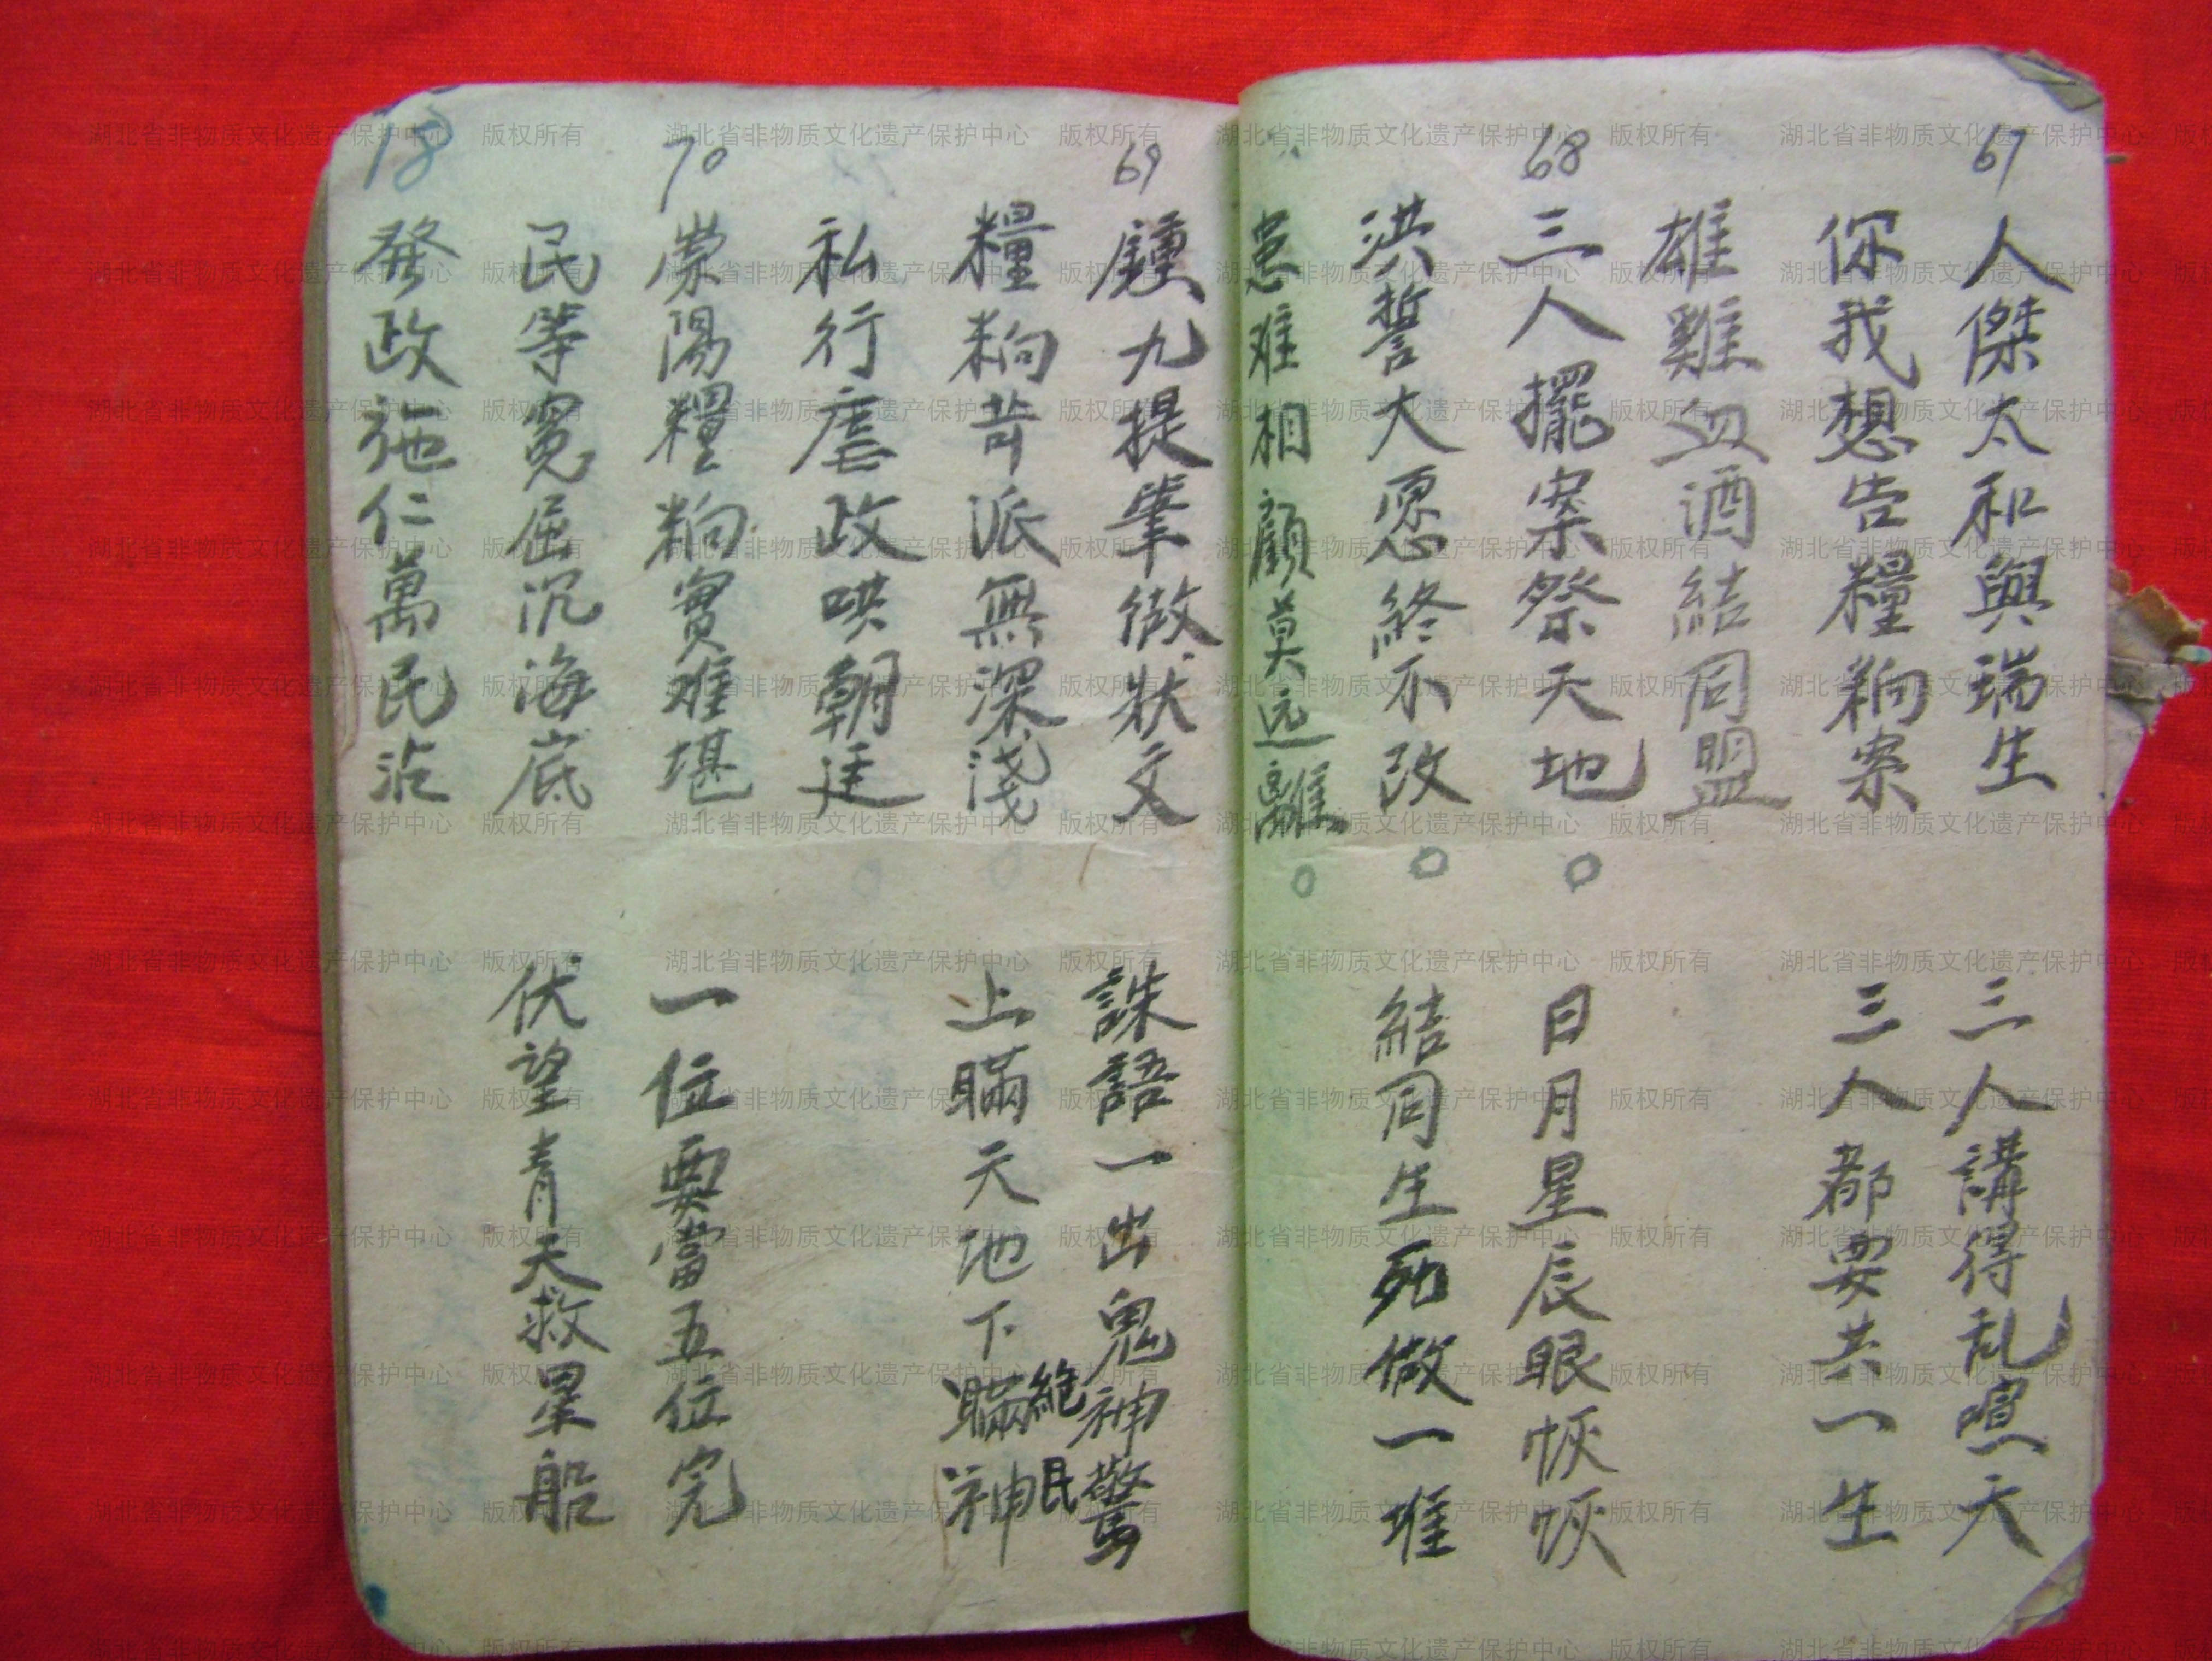 67
人傑太和與瑞生
三人講得乱喧天
你我想告糧粡案
三人都要共一生
雄雞血酒結同盟
68
三人擺案祭天地。
日月星辰眼恢恢
洪誓大愿終不改。
結同生死做一堆
患难相顧莫远離。
69
九提筆做狀文
誅語一出鬼神驚
糧粡苛派無深淺
上瞞天地下瞞神
絶民
私行虐政哄朝廷
70
崇陽糧粡實难堪
一位要當五位完
民等寃屈沉海底
伏望青天救星船
18
發政施仁萬民沾
湖北省非物质文化遗产保护中心 版权所有